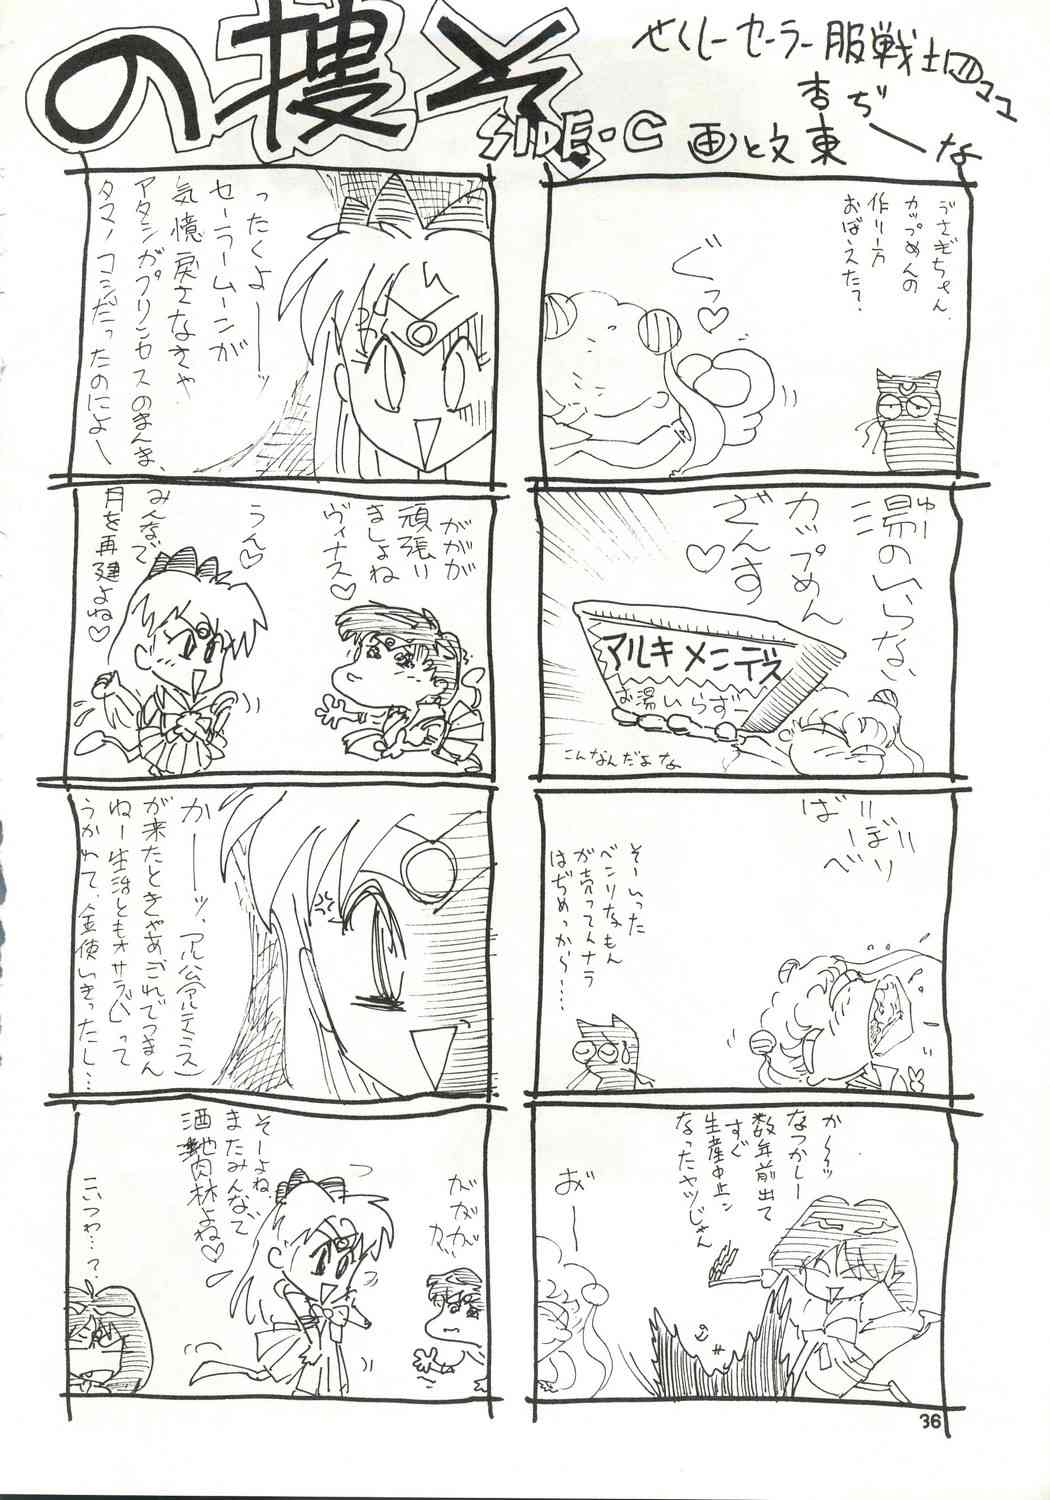 の捜メ
SIDE・C
せくしーセーラー服戦士
画と文 東
杏ぢーな
うさぎちゃん、
カップめんの
作り方
おぼえた?
ぐっ♡
湯のいらない
ゆー
カップめん
ざんす
♡
アルキメンデス
お湯いらずー
こんなんだよな
ばーりぼーり
そーいった
ベンリなもん
が売ってんナラ
はぢめっから……
か〜〜ッ
なつかしー
数年前出て
すぐ
生産中止ン
なったヤツじゃん
おー
ったくよーーッ
セーラームーンが
気憶戻さなきゃ
アタシがプリンセスのまんま、
タマノコシだったのによー
ががが
頑張り
ましょね
ヴィナス♡
うん♡
みんなで
月を再建よね♡
かーーッ、アル公(アルテミス)
が来たときゃあこれでつまん
ねー生活ともオサラバって
うかれて、金使いきったし…
ががが
そーよね、
またみんなで
酒池肉林よね♡
こいつわ…?
36